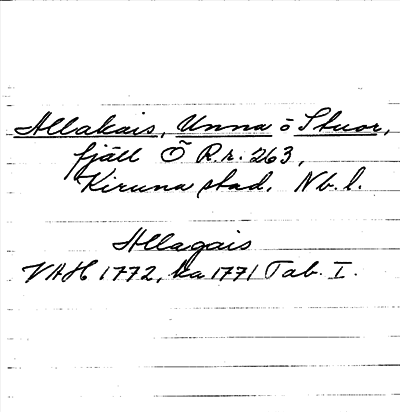 Allakais, Unna o Stuor,
fjäll Ö R.r. 263,
Kiruna stad. Nb. l.
Allagais
VAH 1772, ka 1771 Tab. I.